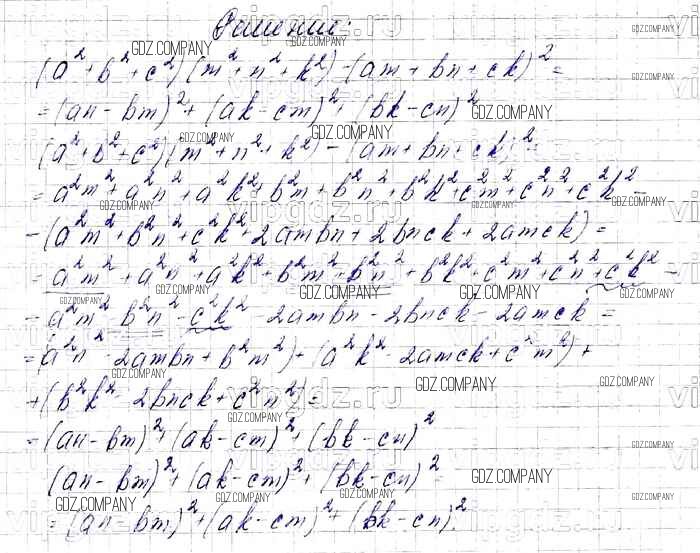 Решение:
(a²+b²+c²)(m²+n²+k²)-(am+bn+ck)²=
=(an-bm)²+(ak-cm)²+(bk-cn)²
(a²+b²+c²)(m²+n²+k²)-(am+bn+ck)²=
=a²m²+a²n²+a²k²+b²m²+b²n²+b²k²+c²m²+c²n²+c²k²-
-(a²m²+b²n²+c²k²+2ambn+2bnck+2amck)=
=a²m²+a²n²+a²k²+b²m²+b²n²+b²k²+c²m²+c²n²+c²k²-
-a²m²-b²n²-c²k²-2ambn-2bnck-2amck=
=(a²n²-2ambn+b²m²)+(a²k²-2amck+c²m²)+
+(b²k²-2bnck+c²n²)=
=(an-bm)²+(ak-cm)²+(bk-cn)²
(an-bm)²+(ak-cm)²+(bk-cn)²=
=(an-bm)²+(ak-cm)²+(bk-cn)².
GDZ.COMPANY
vipgdz.ru